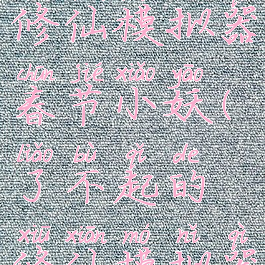 修仙模拟器
chūn jié xiǎo yāo
春节小妖(
liǎo bù qǐ de
了不起的
xiū xiān mó nǐ qì
修仙模拟器